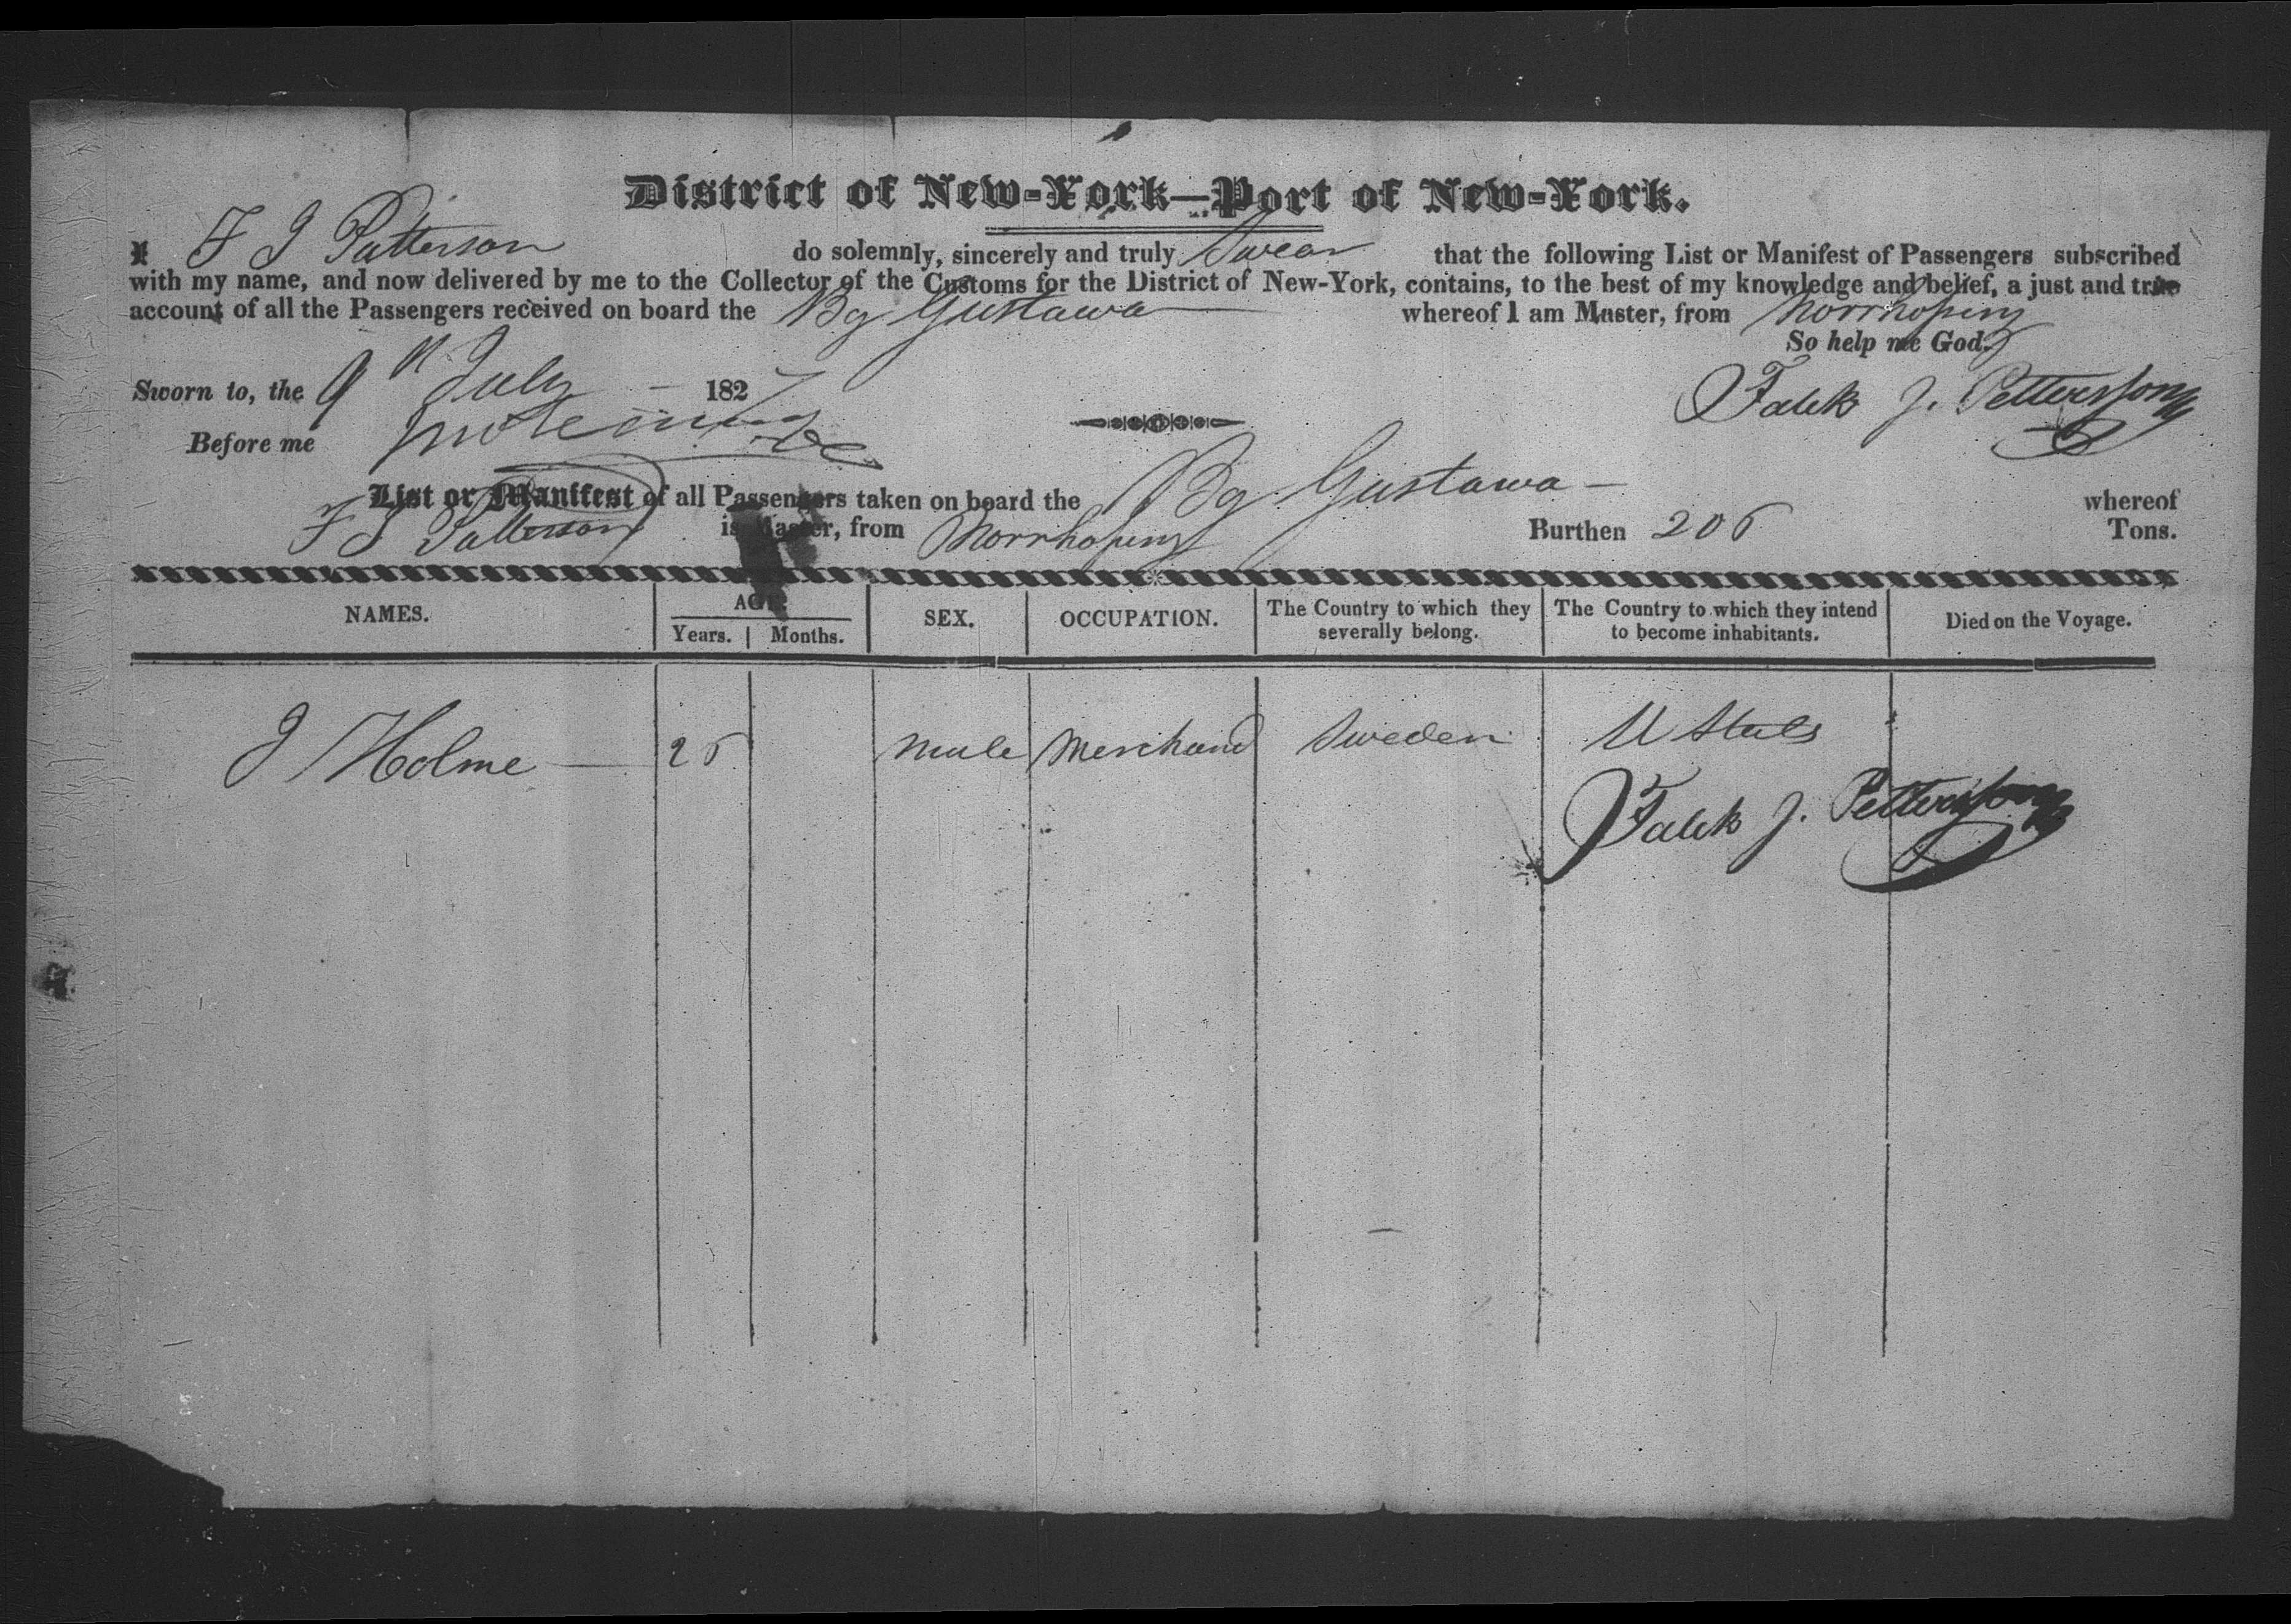 District of New-York—Port of New-York.
I F J Patterson do solemnly, sincerely and truly Swear that the following List or Manifest of Passengers subscribed
with my name, and now delivered by me to the Collector of the Customs for the District of New-York, contains, to the best of my knowledge and belief, a just and true
account of all the Passengers received on board the Bg Gustawa whereof I am Master, from Norrkoping
So help me God.
Sworn to, the 9th July 1827
Falck J. Pettersson
Before me
List or Manifest of all Passengers taken on board the Bg Gustawa whereof
F J Patterson is Master, from Norrkoping Burthen 206 Tons.
NAMES. AGE. SEX. OCCUPATION. The Country to which they severally belong. The Country to which they intend to become inhabitants. Died on the Voyage.
Years. Months.
J Holme 26 male Merchand Sweden U States
Falck J. Pettersson